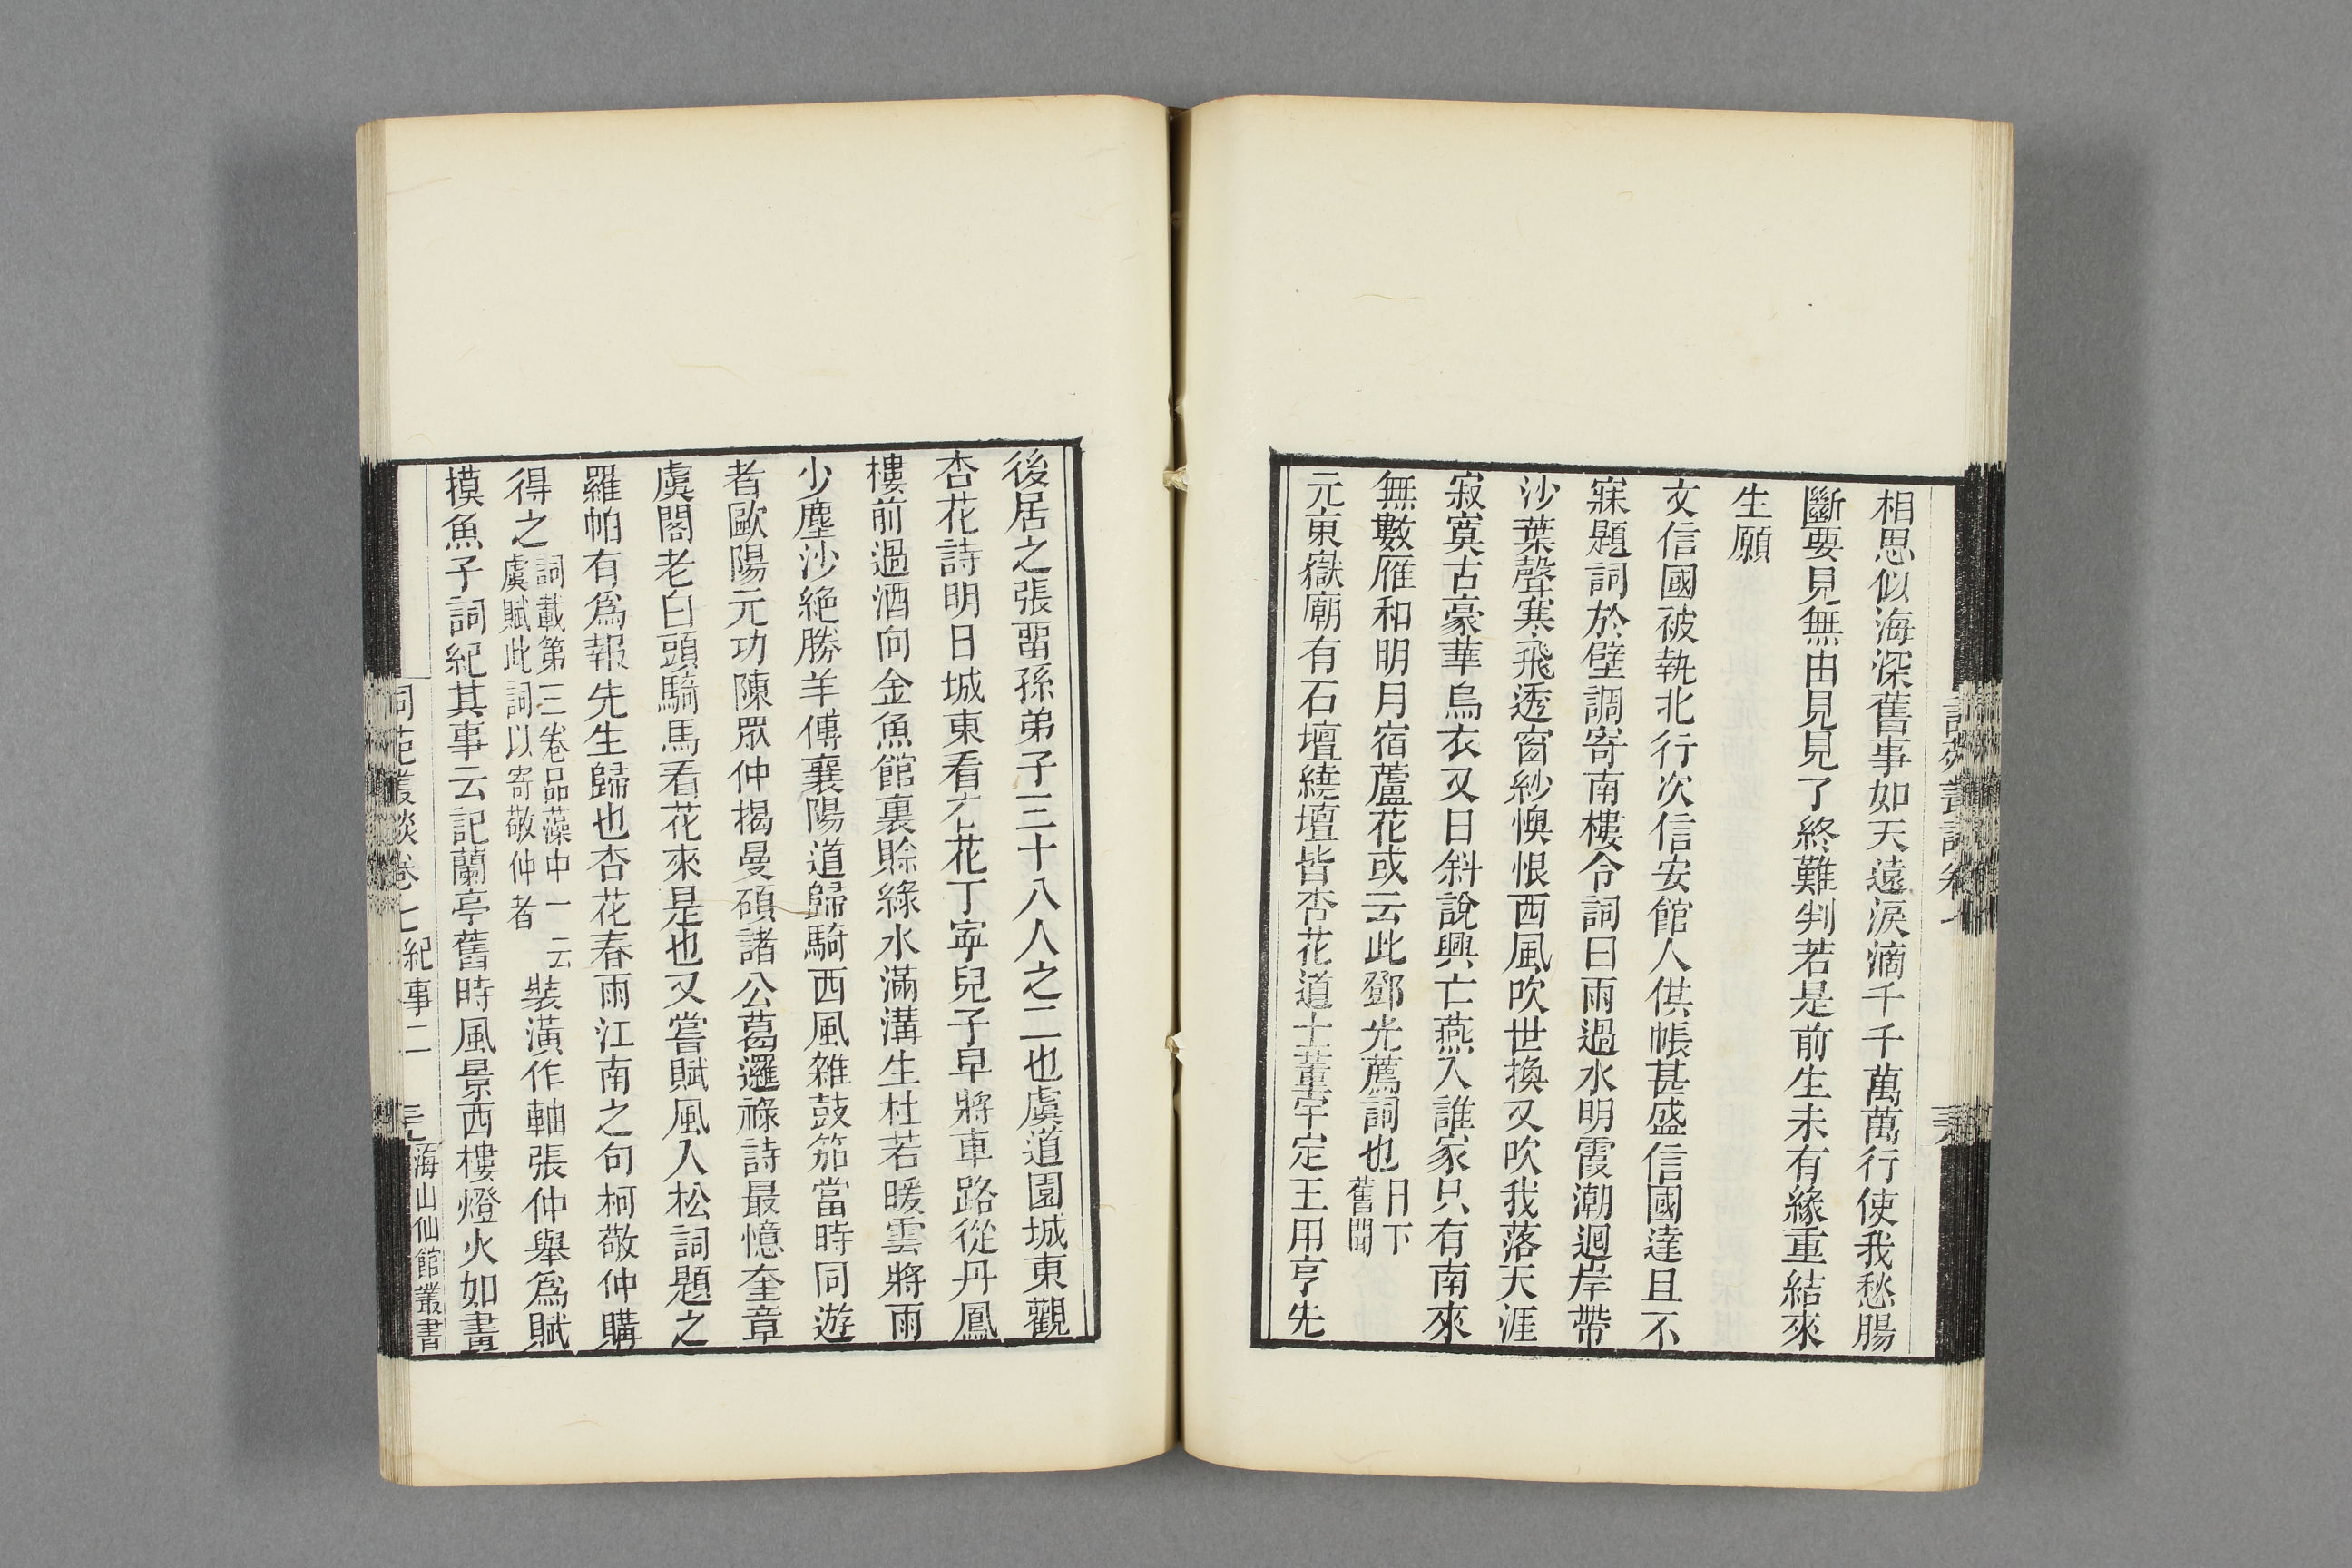 相思似海深舊事如天遠淚滴千千萬萬行使我愁腸
斷要見無由見見了終難判若是前生未有緣重結來
生願
文信國被執北行次信安館人供帳甚盛信國達旦不
寐題詞於壁調寄南樓令詞曰雨過水明霞潮迴岸帶
沙葉聲寒飛透窗紗懊恨西風吹世換又吹我落天涯
寂寞古豪華烏衣又日斜說興亡燕入誰家只有南來
無數雁和明月宿蘆花或云此鄧光薦詞也日下
舊聞
元東嶽廟有石壇繞壇皆杏花道士董宇定王用亨先
後居之張畱孫弟子三十八人之二也虞道園城東觀
杏花詩明日城東看杏花丁寧兒子早將車路從丹鳳
樓前過酒向金魚館裏賖綠水滿溝生杜若暖雲將雨
少塵沙絶勝羊傅襄陽道歸騎西風雜鼓笳當時同遊
者歐陽元功陳眾仲揭曼碩諸公葛邏祿詩最憶奎章
虞閣老白頭騎馬看花來是也又嘗賦風入松詞題之
羅帕有爲報先生歸也杏花春雨江南之句柯敬仲購
得之詞載第三卷品藻中一云
虞賦此詞以寄敬仲者
裝潢作軸張仲舉爲賦
摸魚子詞紀其事云記蘭亭舊時風景西樓燈火如畫
詞苑叢談卷七紀事二
海山仙館叢書